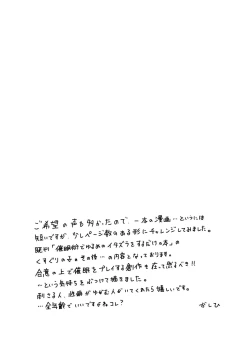 ご希望の声も多かったので、一本の漫画…というには
短いですが、少しページ数のある形にチャレンジしてみました。
既刊「催眠術でゆるめのイタズラをするだけの本」の
くすぐりの子。その後…の内容となっております。
合意の上で催眠をプレイする創作も在って然るべき!!
〜という気持ちをぶつけて描きました。
刺さる人、性癖がゆがむ人がいてくれたら嬉しいです。
…全年齢でいいですよねコレ?